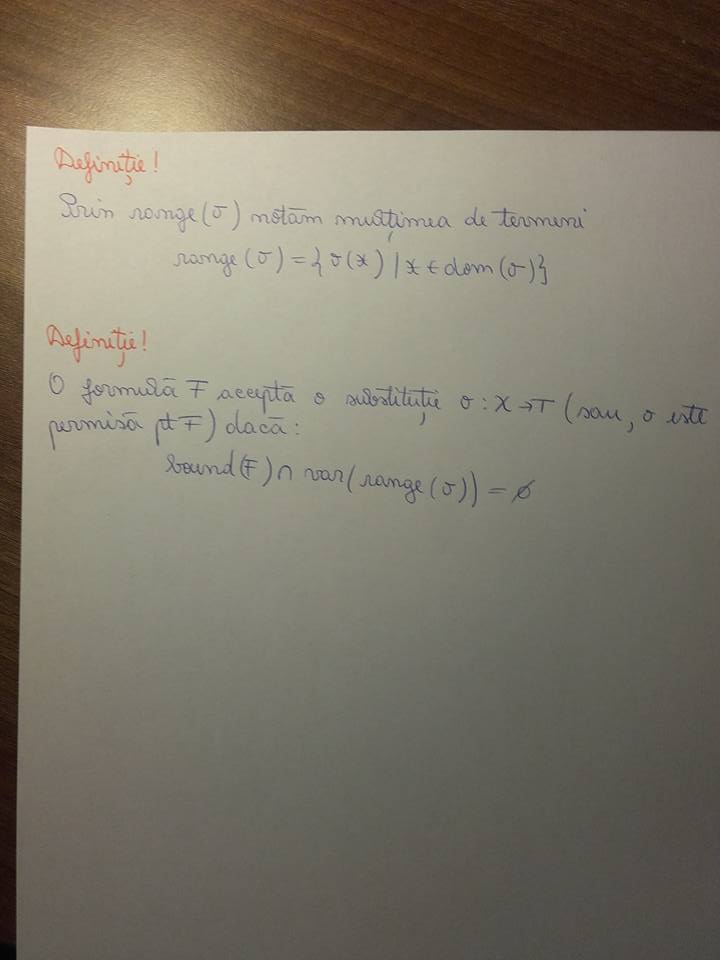 Definiție!
Prin range(σ) notăm mulțimea de termeni
range(σ) = { σ(x) | x ∈ dom(σ)}
Definiție!
O formulă F acceptă o substituție σ : X → T (sau, σ este
permisă pt F) dacă:
bound(F) ∩ var(range(σ)) = ∅